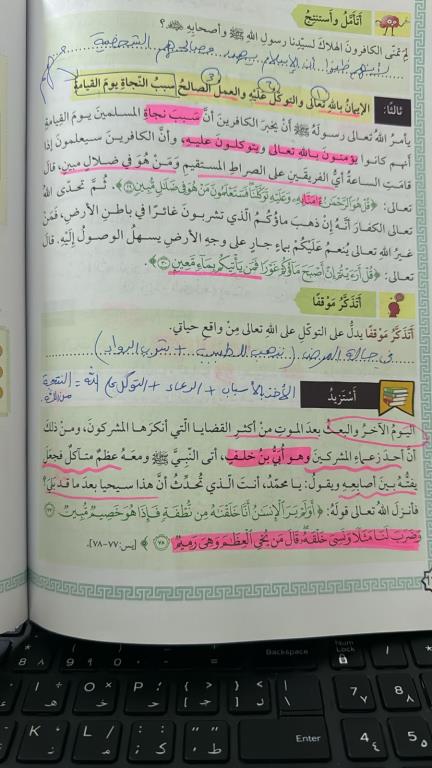 أتأمَّلُ وأستنتِجُ
لِمَ تمنّى الكافرونَ الهلاكَ لسيّدِنا رسولِ اللهِ ﷺ وأصحابِهِ ﷺ؟
ثالثًا:
الإيمانُ باللهِ تعالى والتوكّلُ عليْهِ والعملُ الصالحُ سببُ النّجاةِ يومَ القيامةِ
يأمرُ اللهُ تعالى رسولَهُ ﷺ أنْ يخبرَ الكافرينَ أنَّ سببَ نجاةِ المسلمينَ يومَ القيامةِ
أنهم كانُوا يؤمنونَ باللهِ تعالى ويتوكّلونَ عليهِ، وأنَّ الكافرينَ سيعلمونَ إذا
قامَتِ الساعةُ أيُّ الفريقينِ على الصراطِ المستقيمِ ومَنْ هوَ في ضلالٍ مبينٍ، قالَ
تعالى: ﴿قُلْ هُوَ الرَّحْمَنُ ءَامَنَّا بِهِ وَعَلَيْهِ تَوَكَّلْنَا فَسَتَعْلَمُونَ مَنْ هُوَ فِي ضَلَالٍ مُّبِينٍ ٢٩﴾. ثُمَّ تحدّى اللهُ
تعالى الكفارَ أنَّهُ إنْ ذهبَ ماؤُكُمُ الّذي تشربونَ غائرًا في باطنِ الأرضِ، فمَنْ
غيرُ اللهِ تعالى يُنعمُ عَلَيْكُمْ بماءٍ جارٍ على وجهِ الأرضِ يسهلُ الوصولُ إليْهِ. قالَ
تعالى: ﴿قُلْ أَرَءَيْتُمْ إِنْ أَصْبَحَ مَاؤُكُمْ غَوْرًا فَمَن يَأْتِيكُم بِمَاءٍ مَّعِينٍ ٣٠﴾.
أَتَذَكَّرُ مَوْقفًا
أَتَذَكَّرُ مَوْقفًا يدلُّ على التوكلِ على اللهِ تعالى مِنْ واقعِ حياتي.
في حالة المرض (نذهب للطبيب + نشرب الدواء)
الأخذ بالأسباب + الدعاء + التوكل على الله = النتيجة
من الله
أَسْتَزيدُ
اليومُ الآخرُ والبعثُ بعدَ الموتِ مِنْ أكثرِ القضايا الّتي أنكرَها المشركونَ، ومنْ ذلكَ
أنَّ أحدَ زعماءِ المشركينَ وهوَ أُبيُّ بنُ خلفٍ، أتى النّبيَّ ﷺ ومعَهُ عظمٌ متآكلٌ فجعلَ
يفتُّهُ بينَ أصابعِهِ ويقولُ: يا محمّدُ، أنتَ الّذي تُحدّثُ أنَّ هذا سيحيا بعدَ ما قدْ بَلِيَ؟
فأنزلَ اللهُ تعالى قولَهُ: ﴿أَوَلَمْ يَرَ الْإِنسَانُ أَنَّا خَلَقْنَاهُ مِن نُّطْفَةٍ فَإِذَا هُوَ خَصِيمٌ مُّبِينٌ ٧٧
وَضَرَبَ لَنَا مَثَلًا وَنَسِيَ خَلْقَهُ قَالَ مَن يُحْيِ الْعِظَامَ وَهِيَ رَمِيمٌ ٧٨﴾ [يس: ٧٧-٧٨].
Backspace
Num Lock
Enter